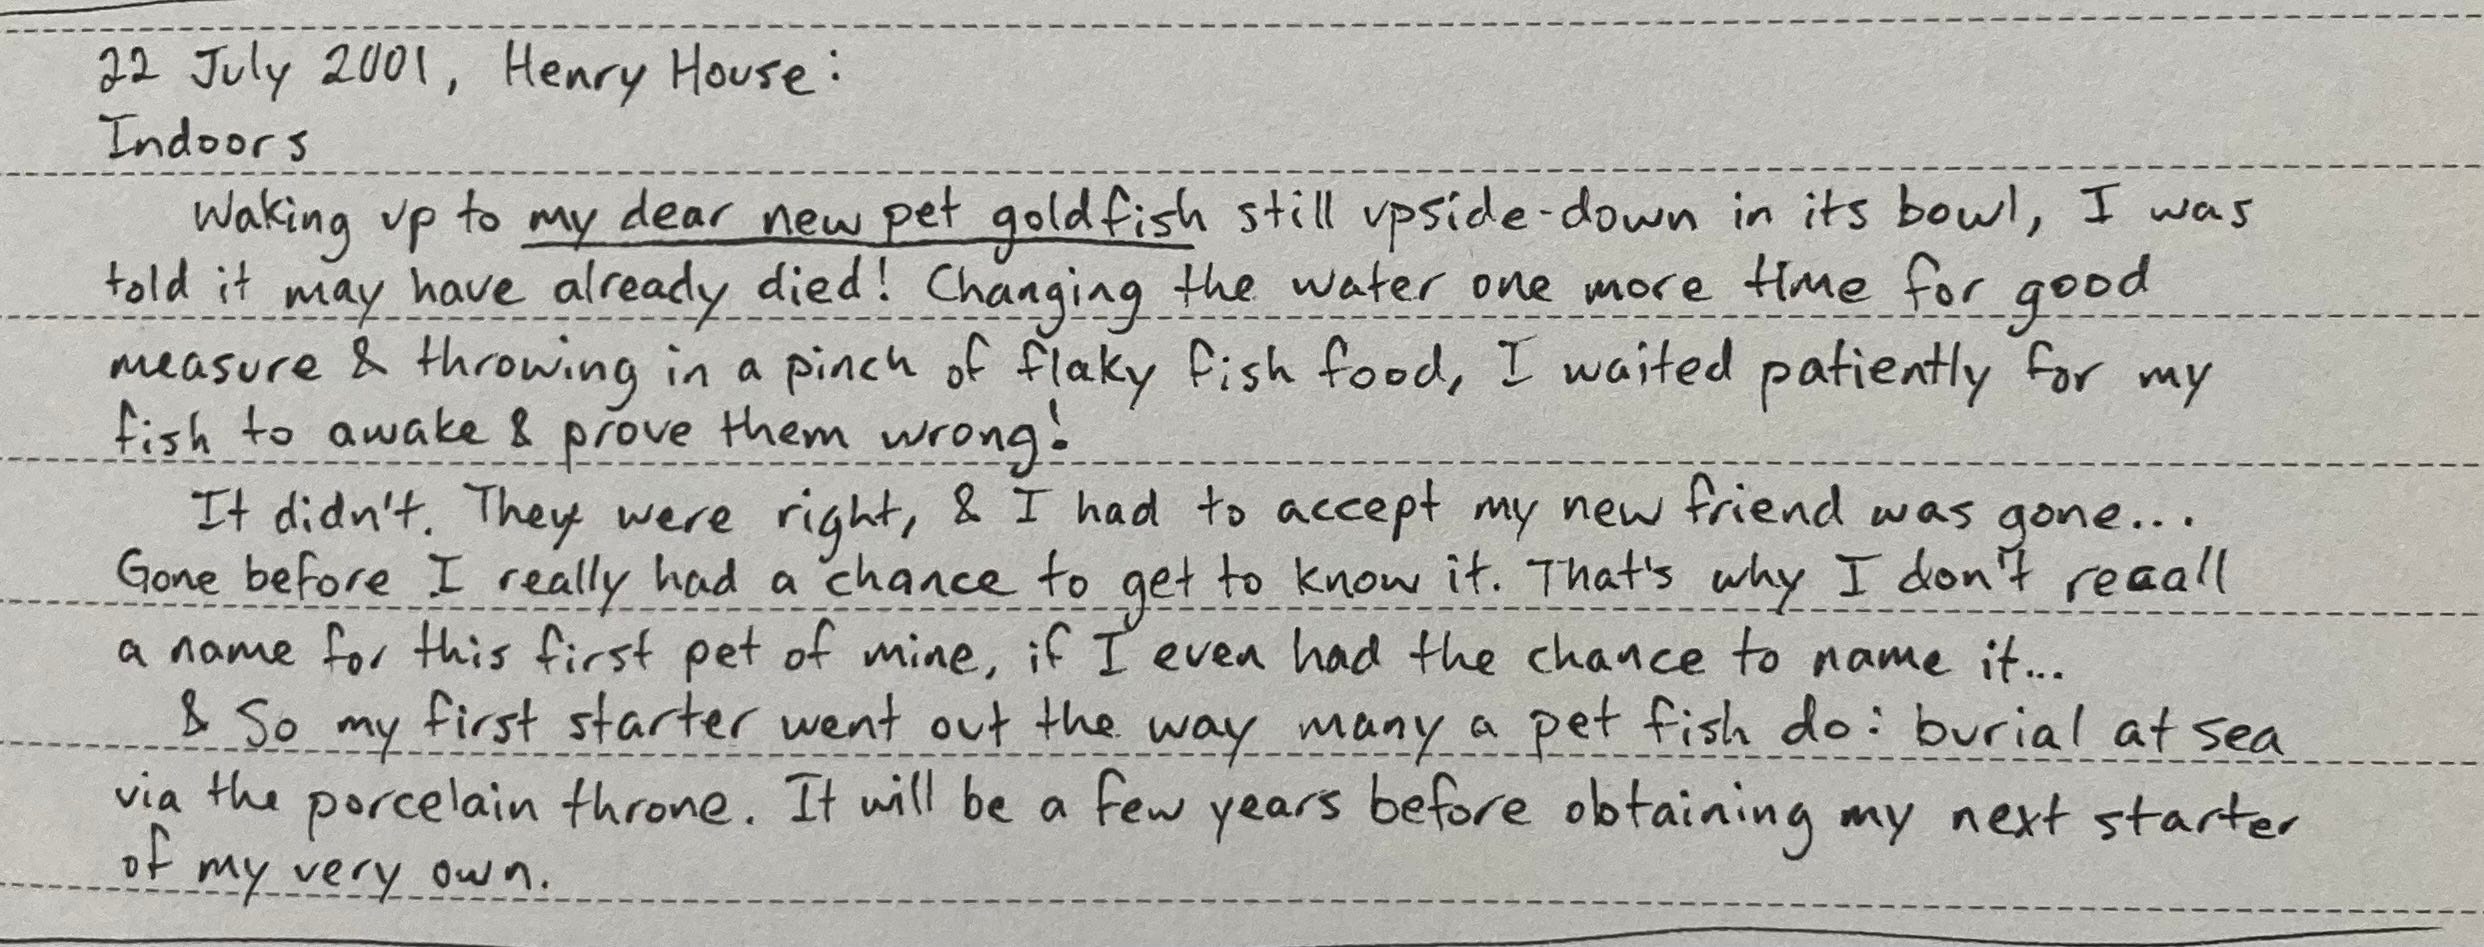 22 July 2001, Henry House:
Indoors
Waking up to my dear new pet goldfish still upside-down in its bowl, I was
told it may have already died! Changing the water one more time for good
measure & throwing in a pinch of flaky fish food, I waited patiently for my
fish to awake & prove them wrong!
It didn't. They were right, & I had to accept my new friend was gone...
Gone before I really had a chance to get to know it. That's why I don't recall
a name for this first pet of mine, if I even had the chance to name it...
& So my first starter went out the way many a pet fish do: burial at sea
via the porcelain throne. It will be a few years before obtaining my next starter
of my very own.